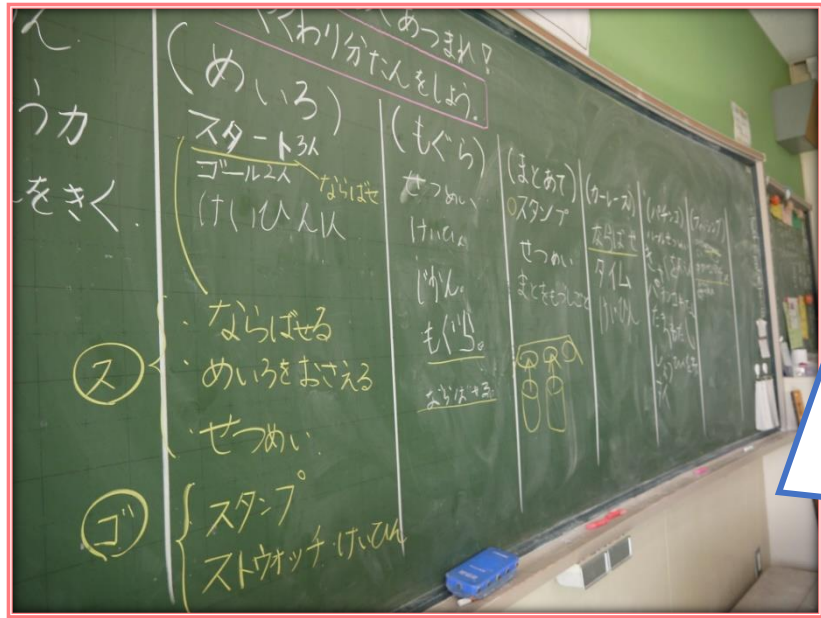 ん.
うカ
をきく.
あつまれ!
やくわり分たんをしよう.
(めいろ)
スタート3人
ゴール2人
ならばせ
けいひん1人
ス
・ならばせる
・めいろをおさえる
・せつめい.
ゴ
スタンプ
ストップウォッチ・けいひん
(もぐら)
せつめい
けいひん
じかん。
もぐら。
ならばせる。
(まとあて)
○スタンプ
せつめい
まとをもつしごと
(カーレース)
ならばせ
タイム
けいひん
(パチンコ)
(フィッシング)